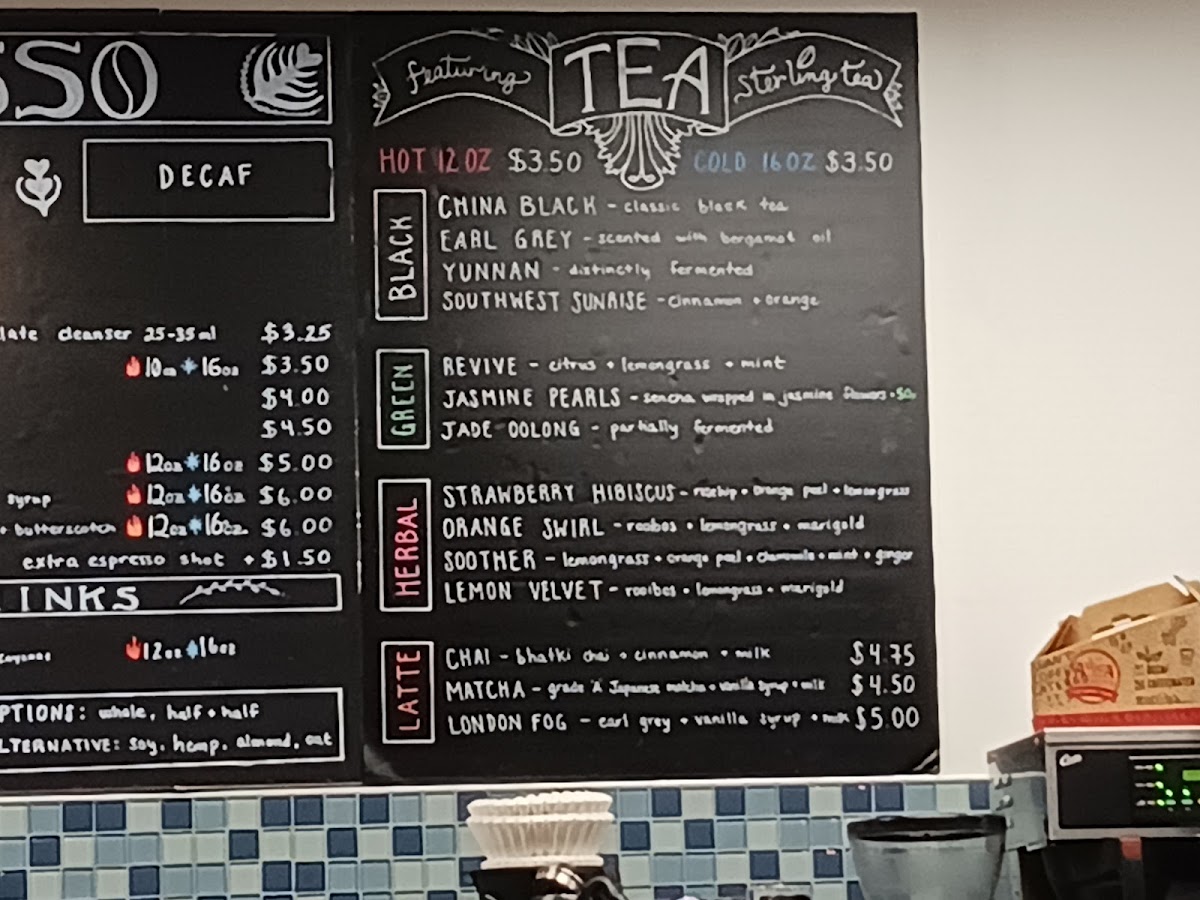 SSO
DECAF
late cleanser 25-35ml $3.25
16oz $3.50
$4.00
$4.50
12oz 16oz $5.00
syrup 12oz 16oz $6.00
+ butterscotch 12oz 16oz $6.00
extra espresso shot +$1.50
INKS
cayenne 12oz 16oz
PTIONS: whole, half + half
LTERNATIVE: soy, hemp, almond, oat
featuring TEA sterling tea
HOT 12 OZ $3.50 COLD 16 OZ $3.50
BLACK
CHINA BLACK - classic black tea
EARL GREY - scented with bergamot oil
YUNNAN - distinctly fermented
SOUTHWEST SUNRISE - cinnamon + orange
GREEN
REVIVE - citrus + lemongrass + mint
JASMINE PEARLS - sencha wrapped in jasmine flowers +.50
JADE OOLONG - partially fermented
HERBAL
STRAWBERRY HIBISCUS - rosehip + orange peel + lemongrass
ORANGE SWIRL - rooibos + lemongrass + marigold
SOOTHER - lemongrass + orange peel + chamomile + mint + ginger
LEMON VELVET - rooibos + lemongrass + marigold
LATTE
CHAI - bhakti chai + cinnamon + milk $4.75
MATCHA - grade "A" Japanese matcha + vanilla syrup + milk $4.50
LONDON FOG - earl grey + vanilla syrup + milk $5.00